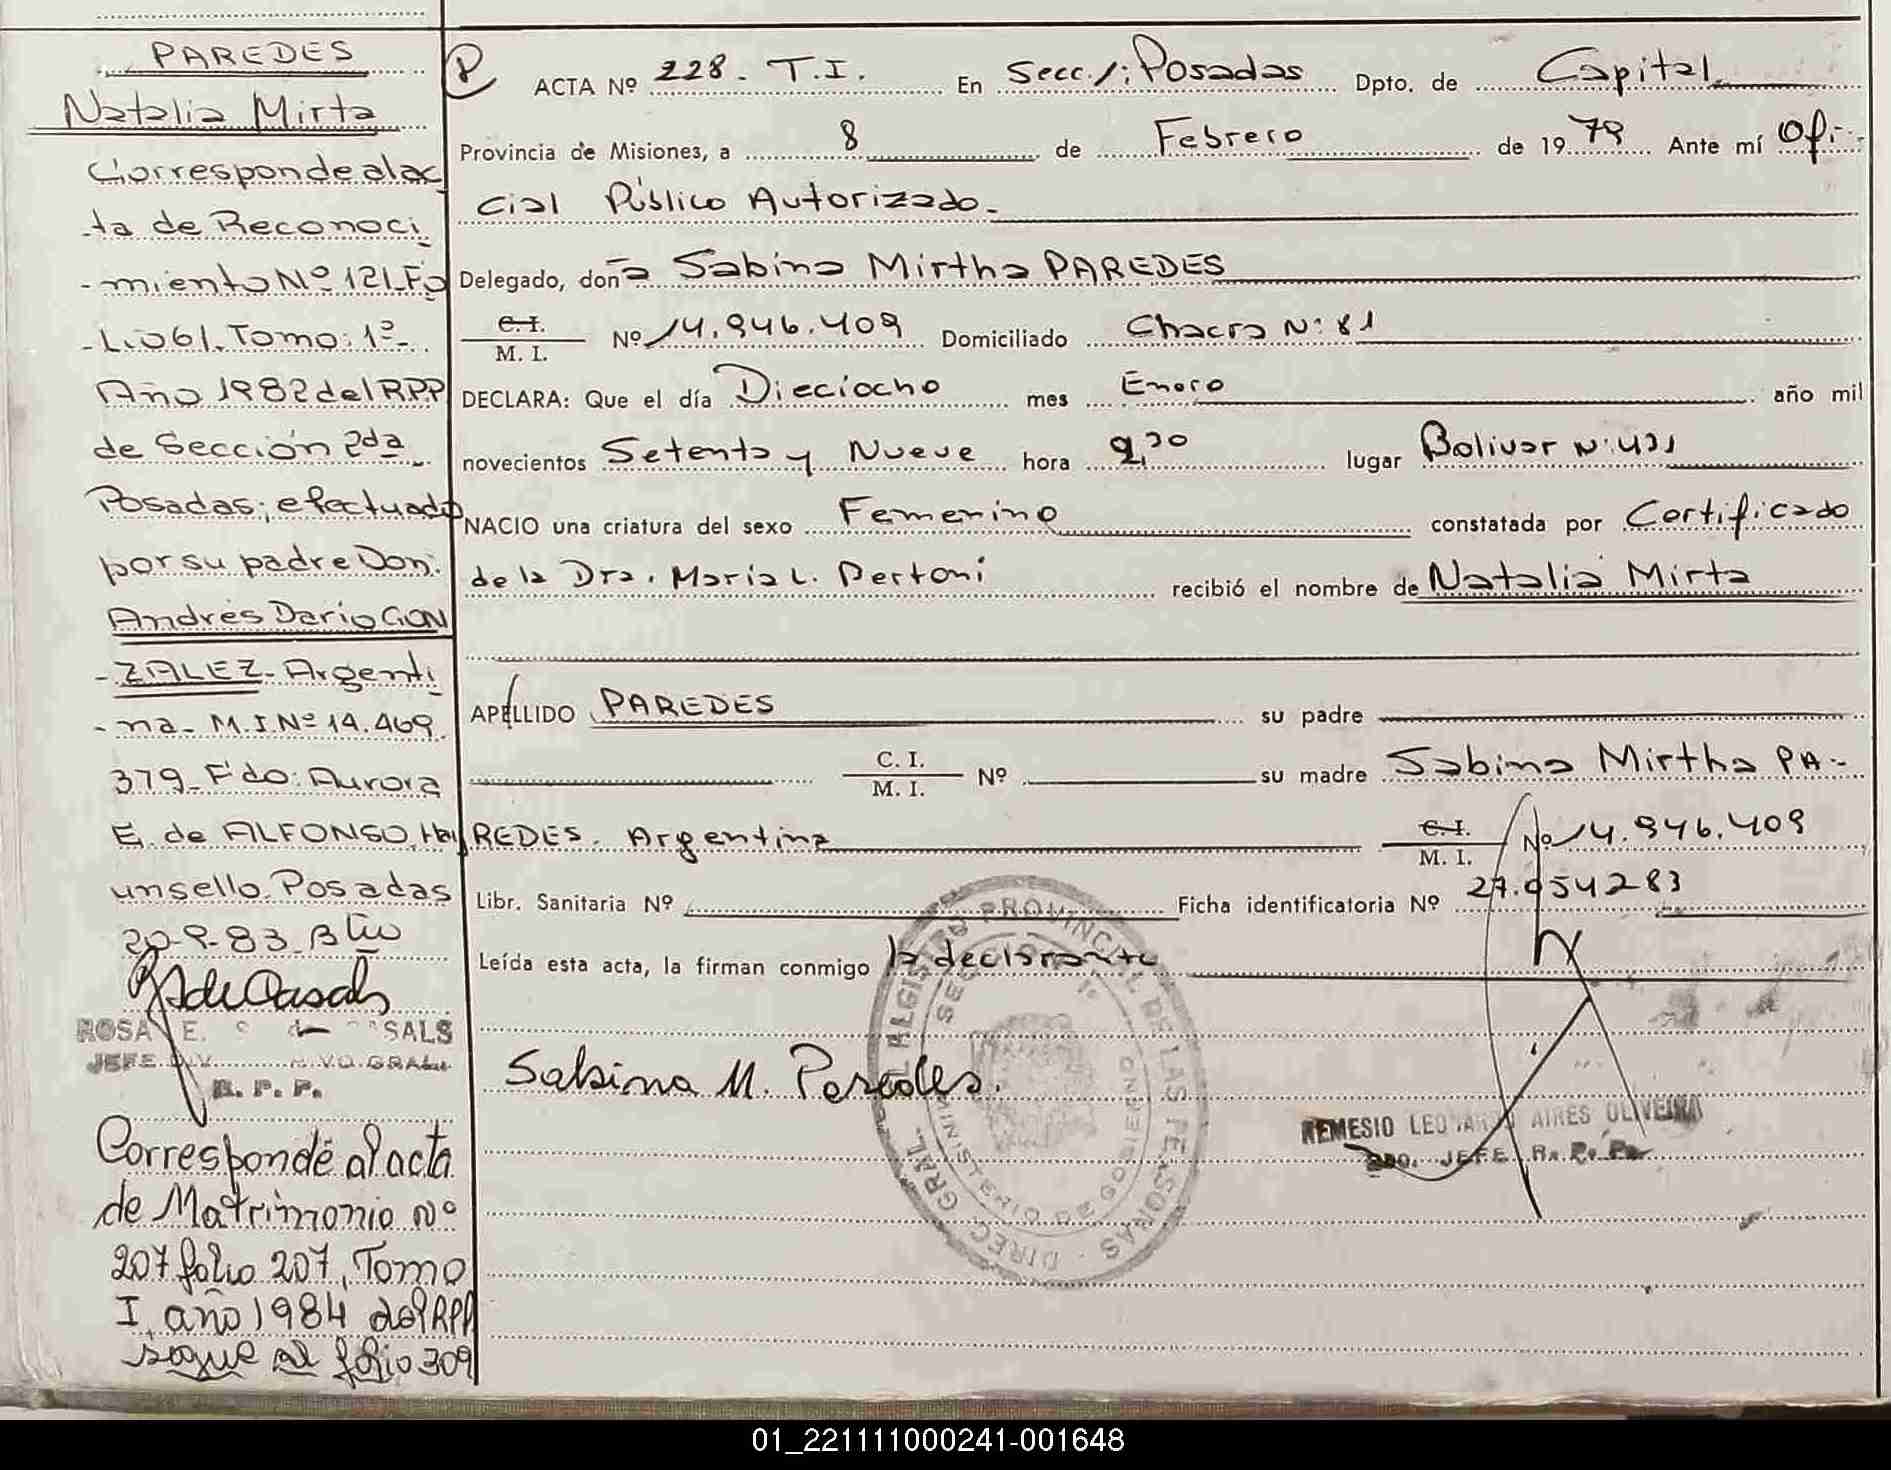 PAREDES
Natalia Mirta
Corresponde al ac
ta de Reconoci
miento Nº 121. Fo
Lio 61. Tomo: 1º
Año 1982 del RPP
de Sección 2da
Posadas; efectuado
por su padre Don:
Andrés Dario GON
ZALEZ - Argenti
na - M.I. Nº 14.469
379 - F'do: Aurora
E. de ALFONSO, Hay
un sello. Posadas
20-9-83
ROSA E. SALS
JEFE DIV.
R. P. P.
Corresponde al acta
de Matrimonio Nº
207 folio 207, Tomo
I, año 1984 del RPP
sigue al folio 309
ACTA Nº 228. T.I. En Secc. 1: Posadas Dpto. de Capital
Provincia de Misiones, a 8 de Febrero de 19 79 Ante mí Ofi-
cial Público Autorizado-
Delegado, doña Sabina Mirtha PAREDES
C. I. / M. I. Nº 14.946.409 Domiciliado Chacra Nº: 81
DECLARA: Que el día Dieciocho mes Enero año mil
novecientos Setenta y Nueve hora 9,30 lugar Bolivar Nº: 431
NACIO una criatura del sexo Femenino constatada por Certificado
de la Dra. Maria L. Bertoni recibió el nombre de Natalia Mirta
APELLIDO PAREDES su padre
C. I. / M. I. Nº su madre Sabina Mirtha PA-
REDES. Argentina C. I. / M. I. Nº 14.946.409
Libr. Sanitaria Nº Ficha identificatoria Nº 27.054283
Leída esta acta, la firman conmigo la declarante
Sabina M. Paredes.
DIREC. GRAL. DEL REGISTRO PROVINCIAL DE LAS PERSONAS
MINISTERIO DE GOBIERNO
REMESIO LEONARDO AIRES OLIVEIRA
2DO. JEFE R. P. P.
01_221111000241-001648